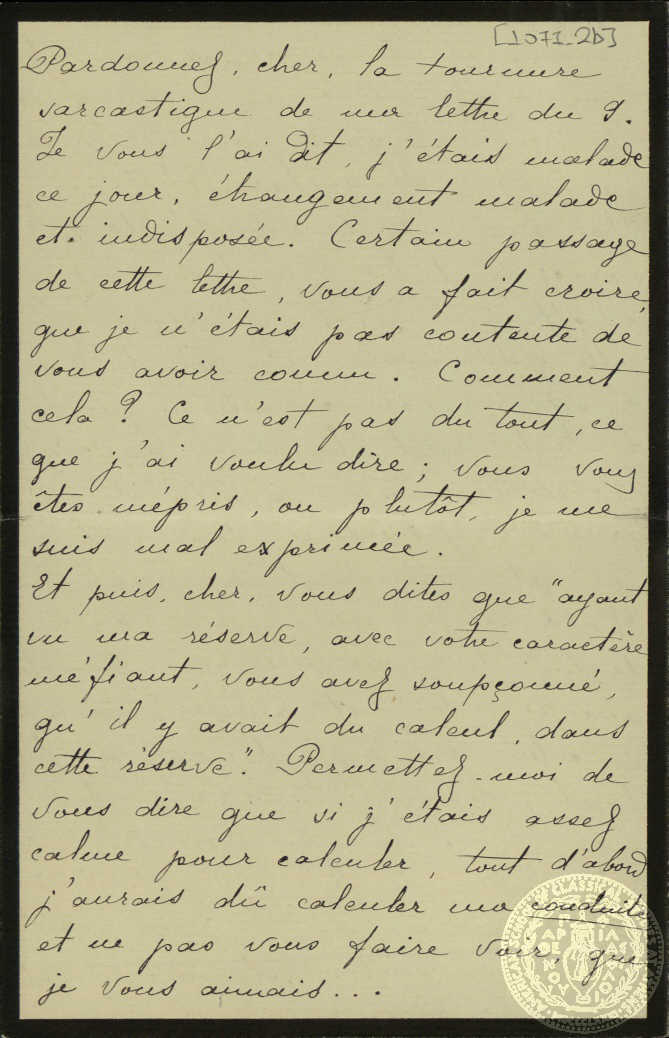 [1071-2b]
Pardonnez, cher, la tournure
sarcastique de ma lettre du 9.
Je vous l'ai dit, j'étais malade
ce jour, étrangement malade
et indisposée. Certain passage
de cette lettre, vous a fait croire,
que je n'étais pas contente de
vous avoir connu. Comment
cela? Ce n'est pas du tout, ce
que j'ai voulu dire; vous vous
êtes mépris, ou plutôt, je me
suis mal exprimée.
Et puis, cher, vous dites que "ayant
vu ma réserve, avec votre caractère
méfiant, vous avez soupçonné,
qu'il y avait du calcul, dans
cette réserve". Permettez-moi de
vous dire que si j'étais assez
calme pour calculer, tout d'abord
j'aurais dû calculer ma conduite
et ne pas vous faire voir, que
je vous aimais...